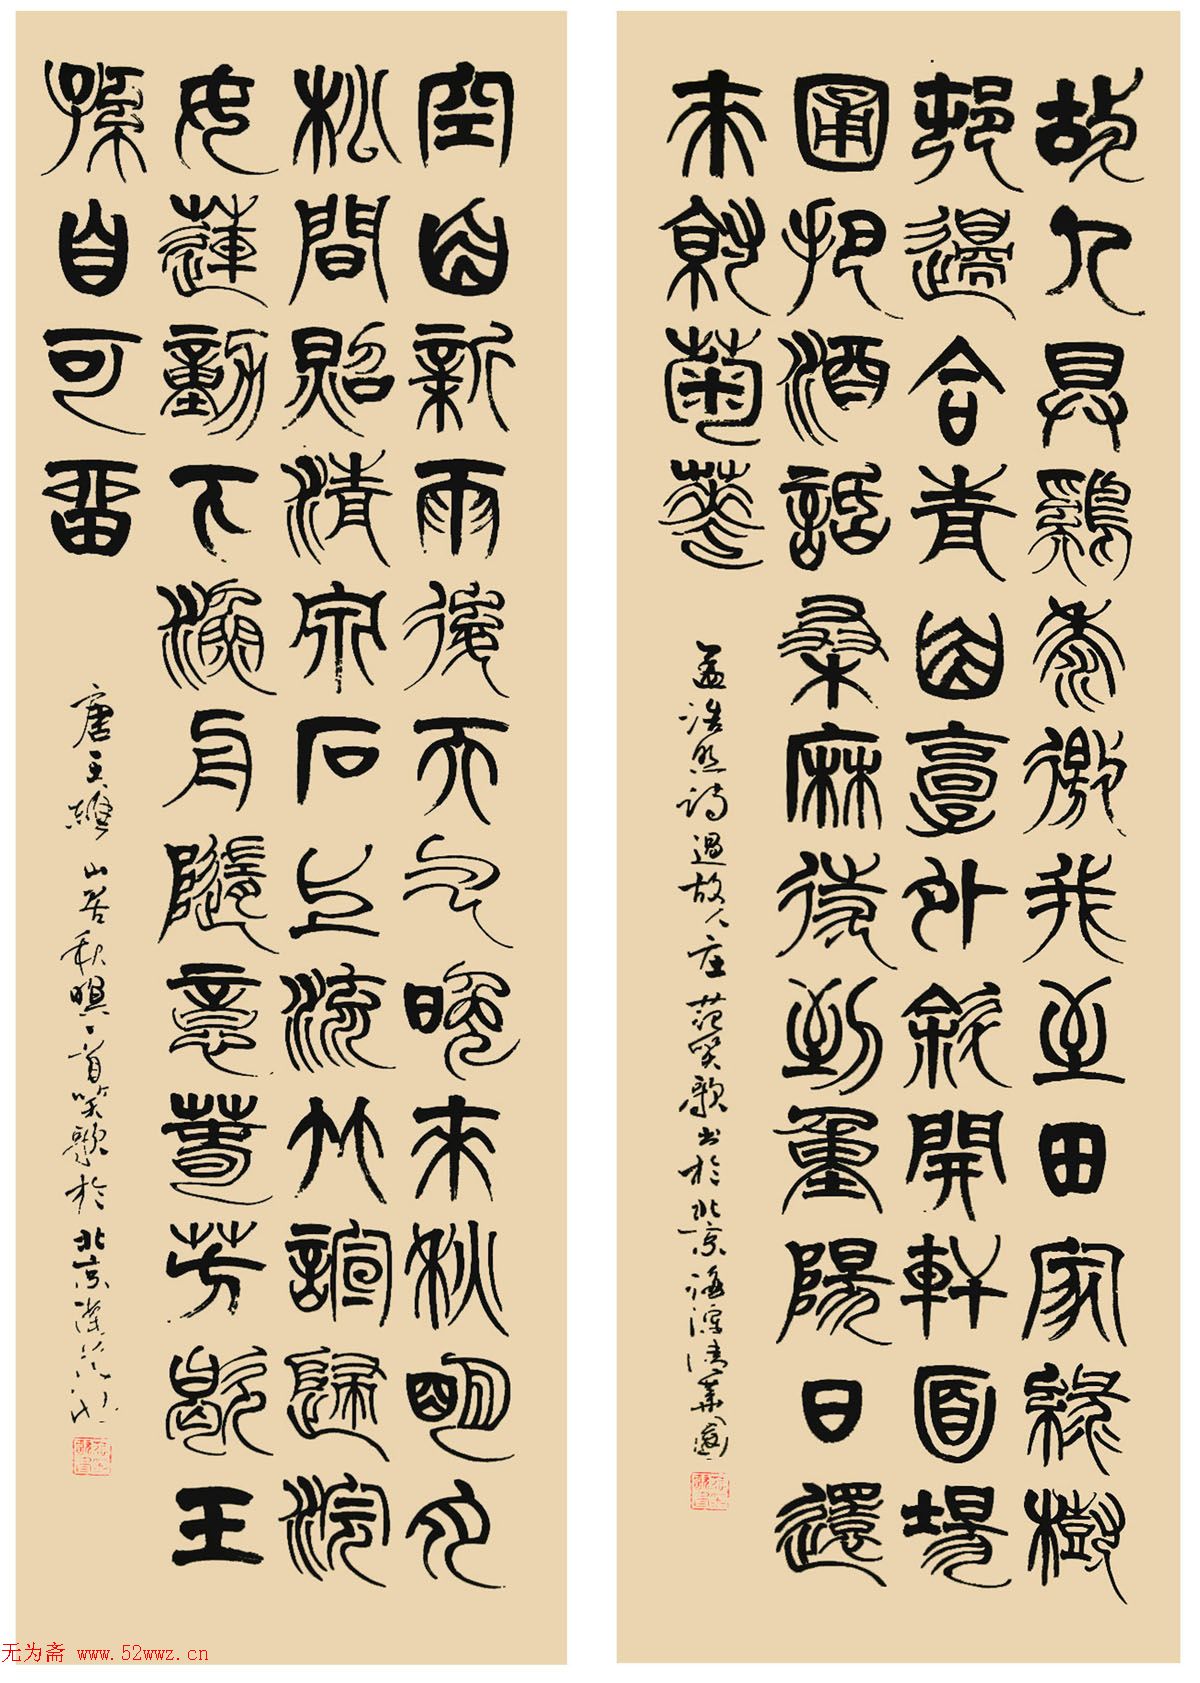 故人具雞黍邀我至田家綠樹
邨邊合青山郭外斜開軒面場
圃把酒話桑麻待到重陽日還
來就菊華
孟浩然詩過故人庄 范笑歌書於北京海淀清華園
空山新雨後天气晚來秋明月
松間照清泉石上流竹諠歸浣
女蓮動下漁舟隨意春芳歇王
孫自可留
唐王維山居秋暝一首笑歌於北京
无为斋 www.52wwz.cn